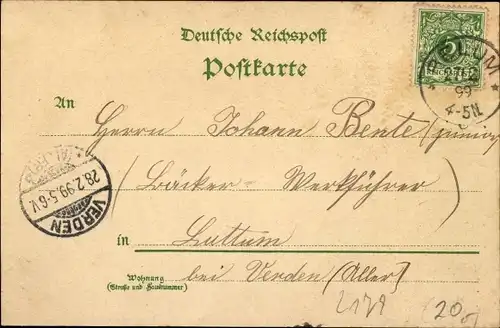 Deutsche Reichspost
Postkarte
An
Herrn Johann Bente (junior)
(Bäcker - Werkführer)
in Luttum
bei Verden (Aller)
Wohnung
(Straße und Hausnummer)
VERDEN
28.2.99.5-6.V.
99
4-5N.
20,-